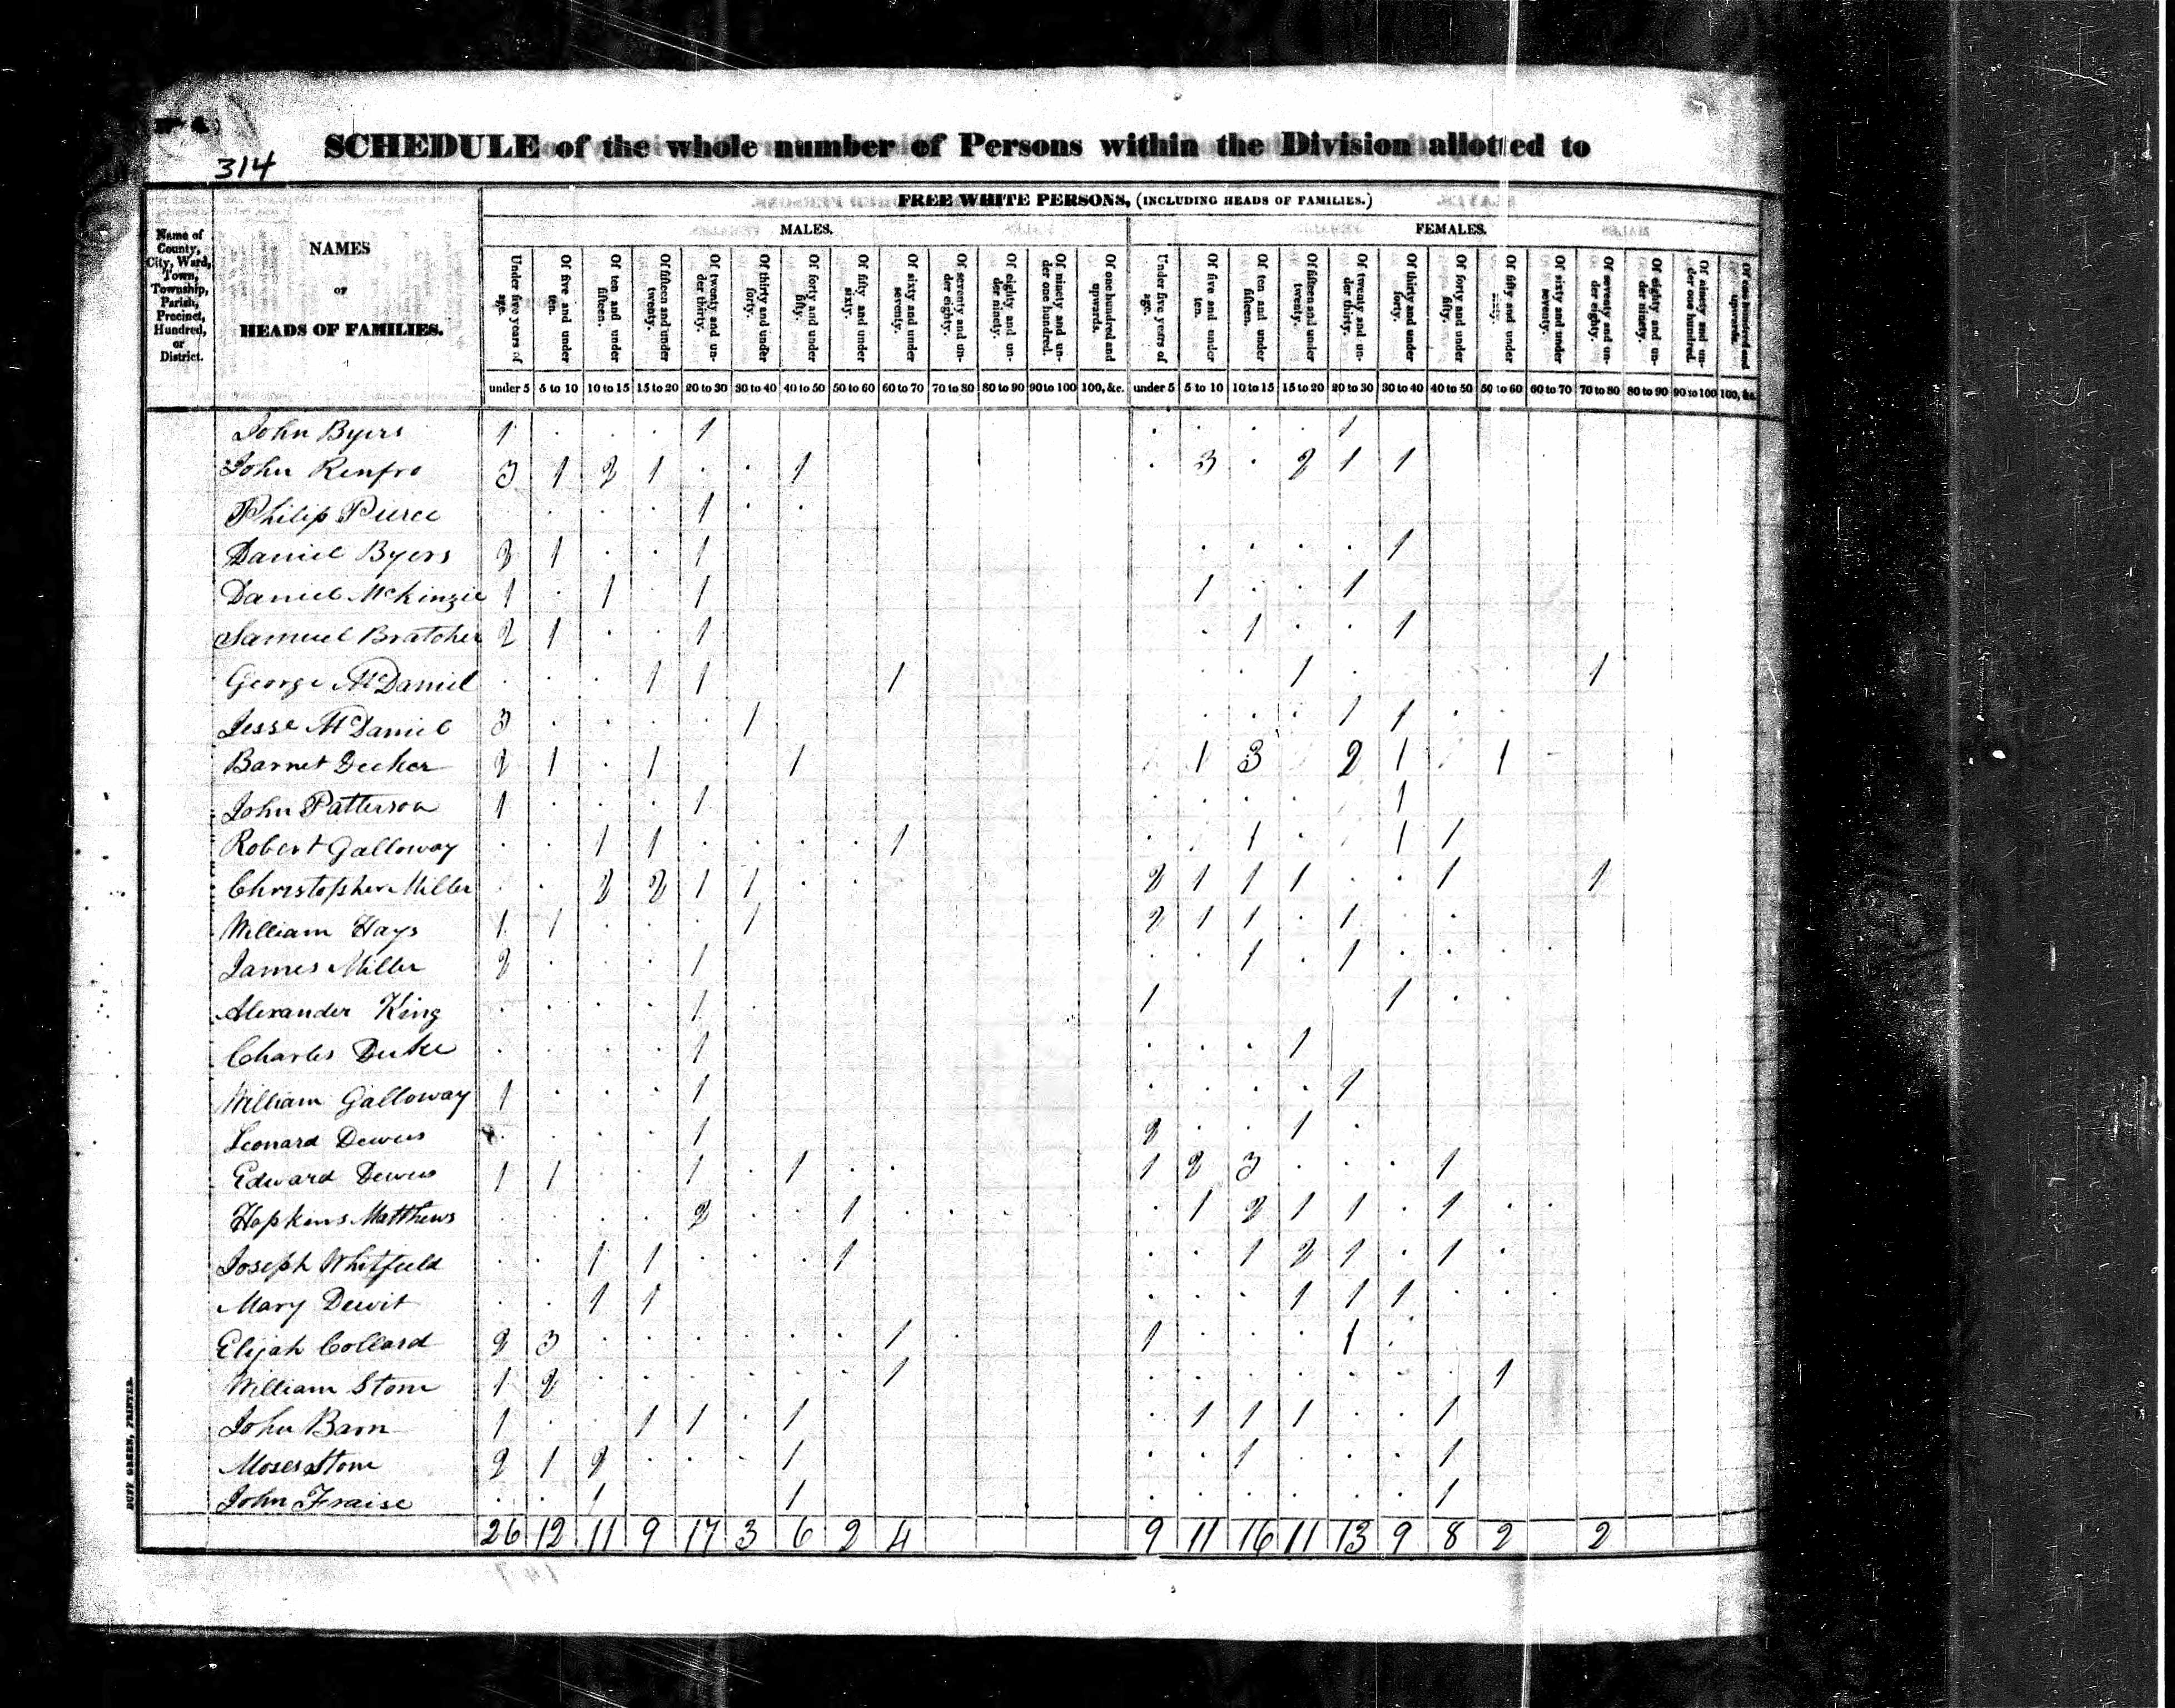 314
SCHEDULE of the whole number of Persons within the Division allotted to
FREE WHITE PERSONS, (INCLUDING HEADS OF FAMILIES.)
MALES. FEMALES.
Name of County, City, Ward, Town, Township, Parish, Precinct, Hundred, or District.
NAMES OF HEADS OF FAMILIES.
Under five years of age. Of five and under ten. Of ten and under fifteen. Of fifteen and under twenty. Of twenty and under thirty. Of thirty and under forty. Of forty and under fifty. Of fifty and under sixty. Of sixty and under seventy. Of seventy and under eighty. Of eighty and under ninety. Of ninety and under one hundred. Of one hundred and upwards. Under five years of age. Of five and under ten. Of ten and under fifteen. Of fifteen and under twenty. Of twenty and under thirty. Of thirty and under forty. Of forty and under fifty. Of fifty and under sixty. Of sixty and under seventy. Of seventy and under eighty. Of eighty and under ninety. Of ninety and under one hundred. Of one hundred and upwards.
under 5 5 to 10 10 to 15 15 to 20 20 to 30 30 to 40 40 to 50 50 to 60 60 to 70 70 to 80 80 to 90 90 to 100 100, &c. under 5 5 to 10 10 to 15 15 to 20 20 to 30 30 to 40 40 to 50 50 to 60 60 to 70 70 to 80 80 to 90 90 to 100 100, &c.
John Byers 1 1 1
John Renfro 3 1 2 1 1 3 2 1 1
Philip Pierce 1
Daniel Byers 3 1 1 1
Daniel McKinzie 1 1 1 1 1
Samuel Bratcher 2 1 1 1 1
George McDaniel 1 1 1 1 1
Jesse McDaniel 3 1 1 1
Barnet Decker 2 1 1 1 1 3 2 1 1
John Patterson 1 1 1
Robert Galloway 1 1 1 1 1 1
Christopher Miller 2 2 1 1 2 1 1 1 1 1
William Hays 1 1 1 2 1 1 1
James Miller 2 1 1 1
Alexander King 1 1 1
Charles Duke 1 1
William Galloway 1 1 1
Leonard Dewees 1 2 1
Edward Dewees 1 1 1 1 1 2 3 1
Hopkins Matthews 2 1 1 2 1 1 1
Joseph Whitfield 1 1 1 1 2 1 1
Mary Dewit 1 1 1 1 1
Elijah Collard 2 3 1 1 1
William Stone 1 2 1 1
John Barn 1 1 1 1 1 1 1 1
Moses Stone 2 1 2 1 1 1
John Fraise 1 1 1
26 12 11 9 17 3 6 2 4 9 11 16 11 13 9 8 2 2
DUFF GREEN, PRINTER.